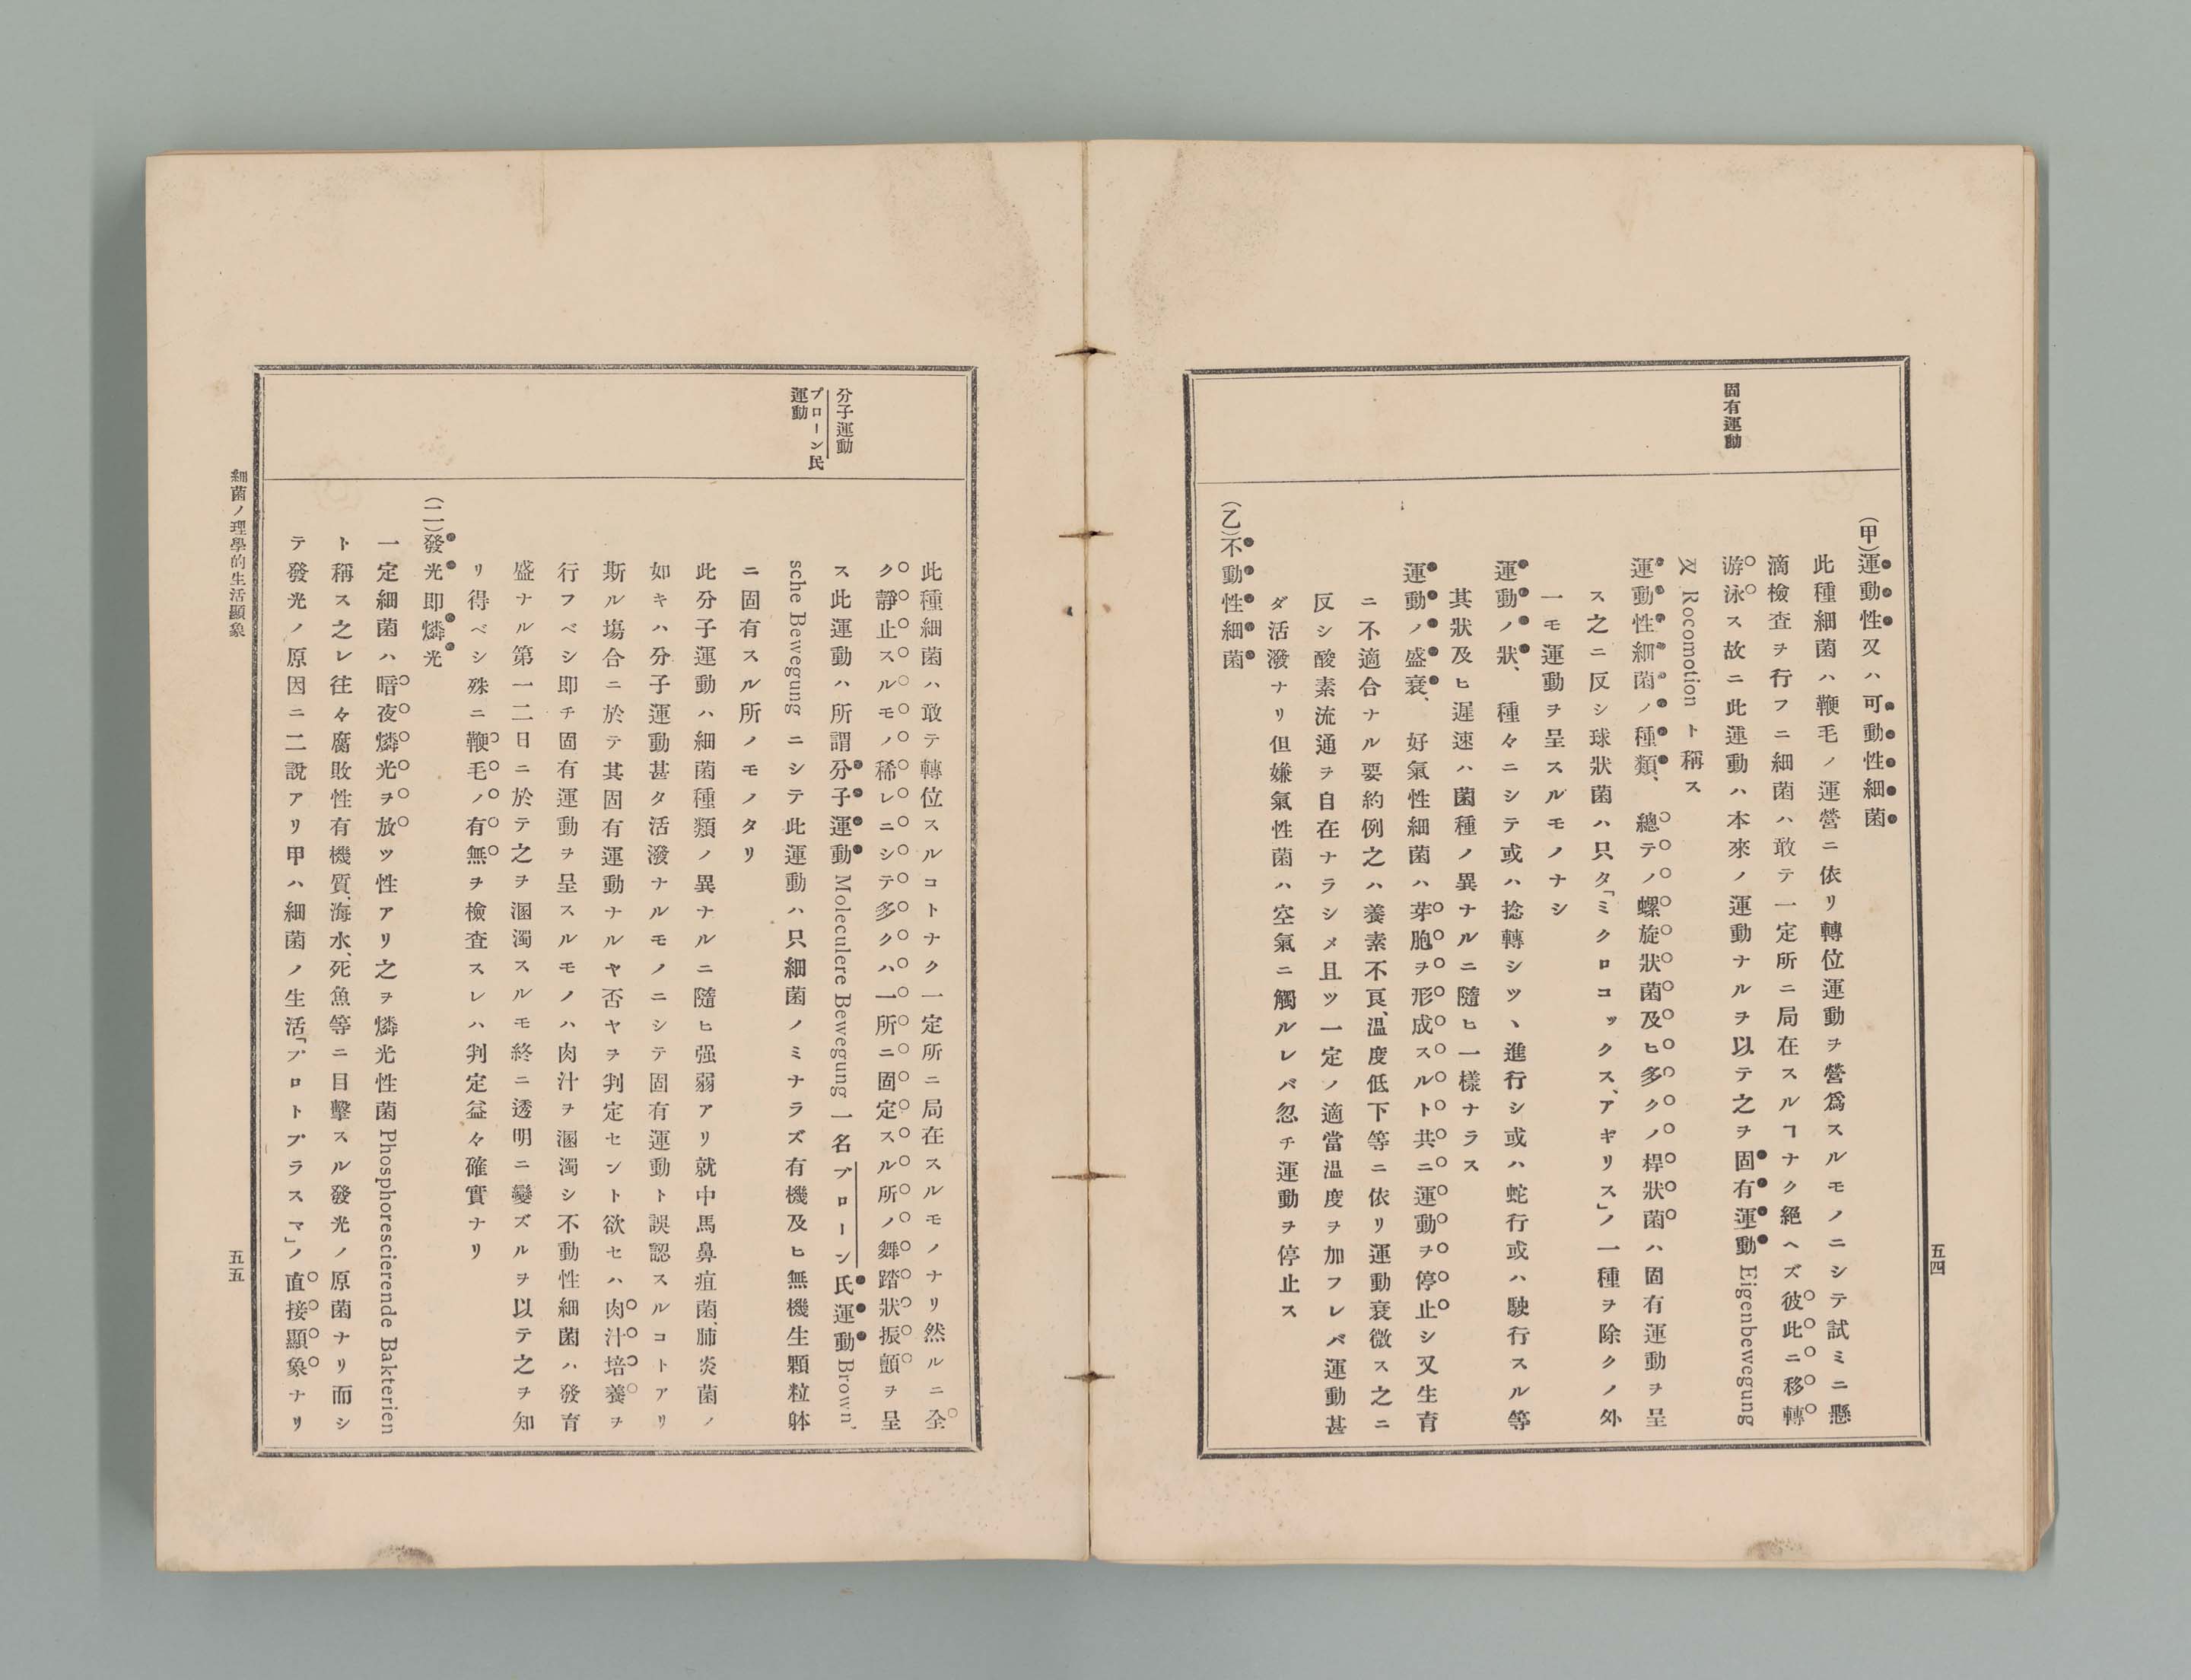 五四
固有運動
(甲)運動性又ハ可動性細菌
此種細菌ハ鞭毛ノ運營ニ依リ轉位運動ヲ營爲スルモノニシテ試ミニ懸
滴檢査ヲ行フニ細菌ハ敢テ一定所ニ局在スルヿナク絕ヘズ彼此ニ移轉
游泳ス故ニ此運動ハ本來ノ運動ナルヲ以テ之ヲ固有運動 Eigenbewegung
又 Rocomotion ト稱ス
運動性細菌ノ種類、總テノ螺旋狀菌及ヒ多クノ桿狀菌ハ固有運動ヲ呈
ス之ニ反シ球狀菌ハ只タ「ミクロコックス、アギリス」ノ一種ヲ除クノ外
一モ運動ヲ呈スルモノナシ
運動ノ狀、種々ニシテ或ハ捻轉シツヽ進行シ或ハ蛇行或ハ駛行スル等
其狀及ヒ遲速ハ菌種ノ異ナルニ隨ヒ一樣ナラス
運動ノ盛衰、好氣性細菌ハ芽胞ヲ形成スルト共ニ運動ヲ停止シ又生育
ニ不適合ナル要約例之ハ養素不良、溫度低下等ニ依リ運動衰微ス之ニ
反シ酸素流通ヲ自在ナラシメ且ツ一定ノ適當溫度ヲ加フレバ運動甚
ダ活潑ナリ但嫌氣性菌ハ空氣ニ觸ルレバ忽チ運動ヲ停止ス
(乙)不動性細菌
分子運動
ブローン民
運動
此種細菌ハ敢テ轉位スルコトナク一定所ニ局在スルモノナリ然ルニ全
ク靜止スルモノ稀レニシテ多クハ一所ニ固定スル所ノ舞踏狀振顫ヲ呈
ス此運動ハ所謂分子運動 Moleculere Bewegung 一名ブローン氏運動 Brown,
sche Bewegung ニシテ此運動ハ只細菌ノミナラズ有機及ヒ無機生顆粒躰
ニ固有スル所ノモノタリ
此分子運動ハ細菌種類ノ異ナルニ隨ヒ强弱アリ就中馬鼻疽菌、肺炎菌ノ
如キハ分子運動甚タ活潑ナルモノニシテ固有運動ト誤認スルコトアリ
斯ル塲合ニ於テ其固有運動ナルヤ否ヤヲ判定セント欲セハ肉汁培養ヲ
行フベシ即チ固有運動ヲ呈スルモノハ肉汁ヲ溷濁シ不動性細菌ハ發育
盛ナル第一二日ニ於テ之ヲ溷濁スルモ終ニ透明ニ變ズルヲ以テ之ヲ知
リ得ベシ殊ニ鞭毛ノ有無ヲ檢査スレハ判定益々確實ナリ
(二)發光即燐光
一定細菌ハ暗夜燐光ヲ放ツ性アリ之ヲ燐光性菌 Phosphorescierende Bakterien
ト稱ス之レ往々腐敗性有機質、海水、死魚等ニ目擊スル發光ノ原菌ナリ而シ
テ發光ノ原因ニ二說アリ甲ハ細菌ノ生活「プロトプラスマ」ノ直接顯象ナリ
細菌ノ理學的生活顯象
五五